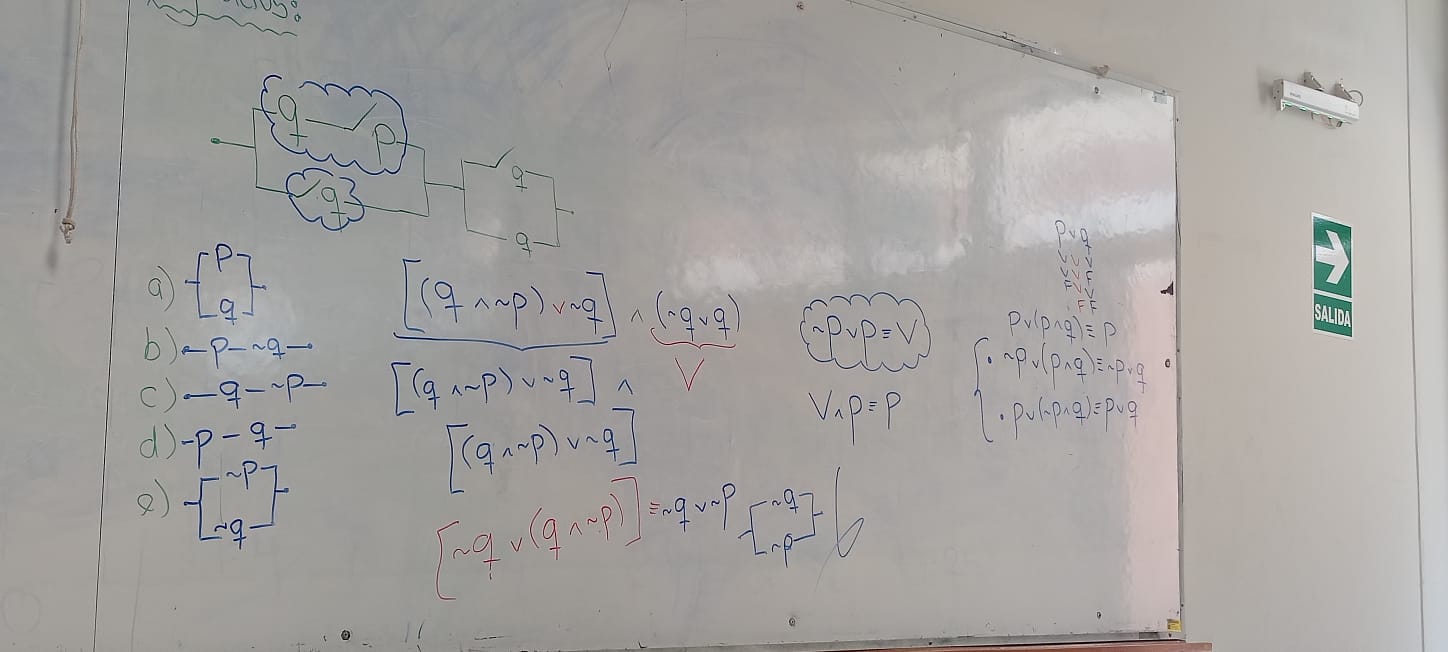 q p
q
q
q
a) p
q
b) p - ~q
c) q - ~p
d) p - q
e) ~p
~q
[(q ∧ ~p) ∨ ~q] ∧ (~q ∨ q)
V
[(q ∧ ~p) ∨ ~q] ∧
[(q ∧ ~p) ∨ ~q]
[~q ∨ (q ∧ ~p)] ≡ ~q ∨ ~p
~q
~p
~p ∨ p ≡ V
V ∧ p ≡ p
p ∨ q
V V V
V V F
F V V
F F
p ∨ (p ∧ q) ≡ p
~p ∨ (p ∧ q) ≡ ~p ∨ q
p ∨ (~p ∧ q) ≡ p ∨ q
SALIDA